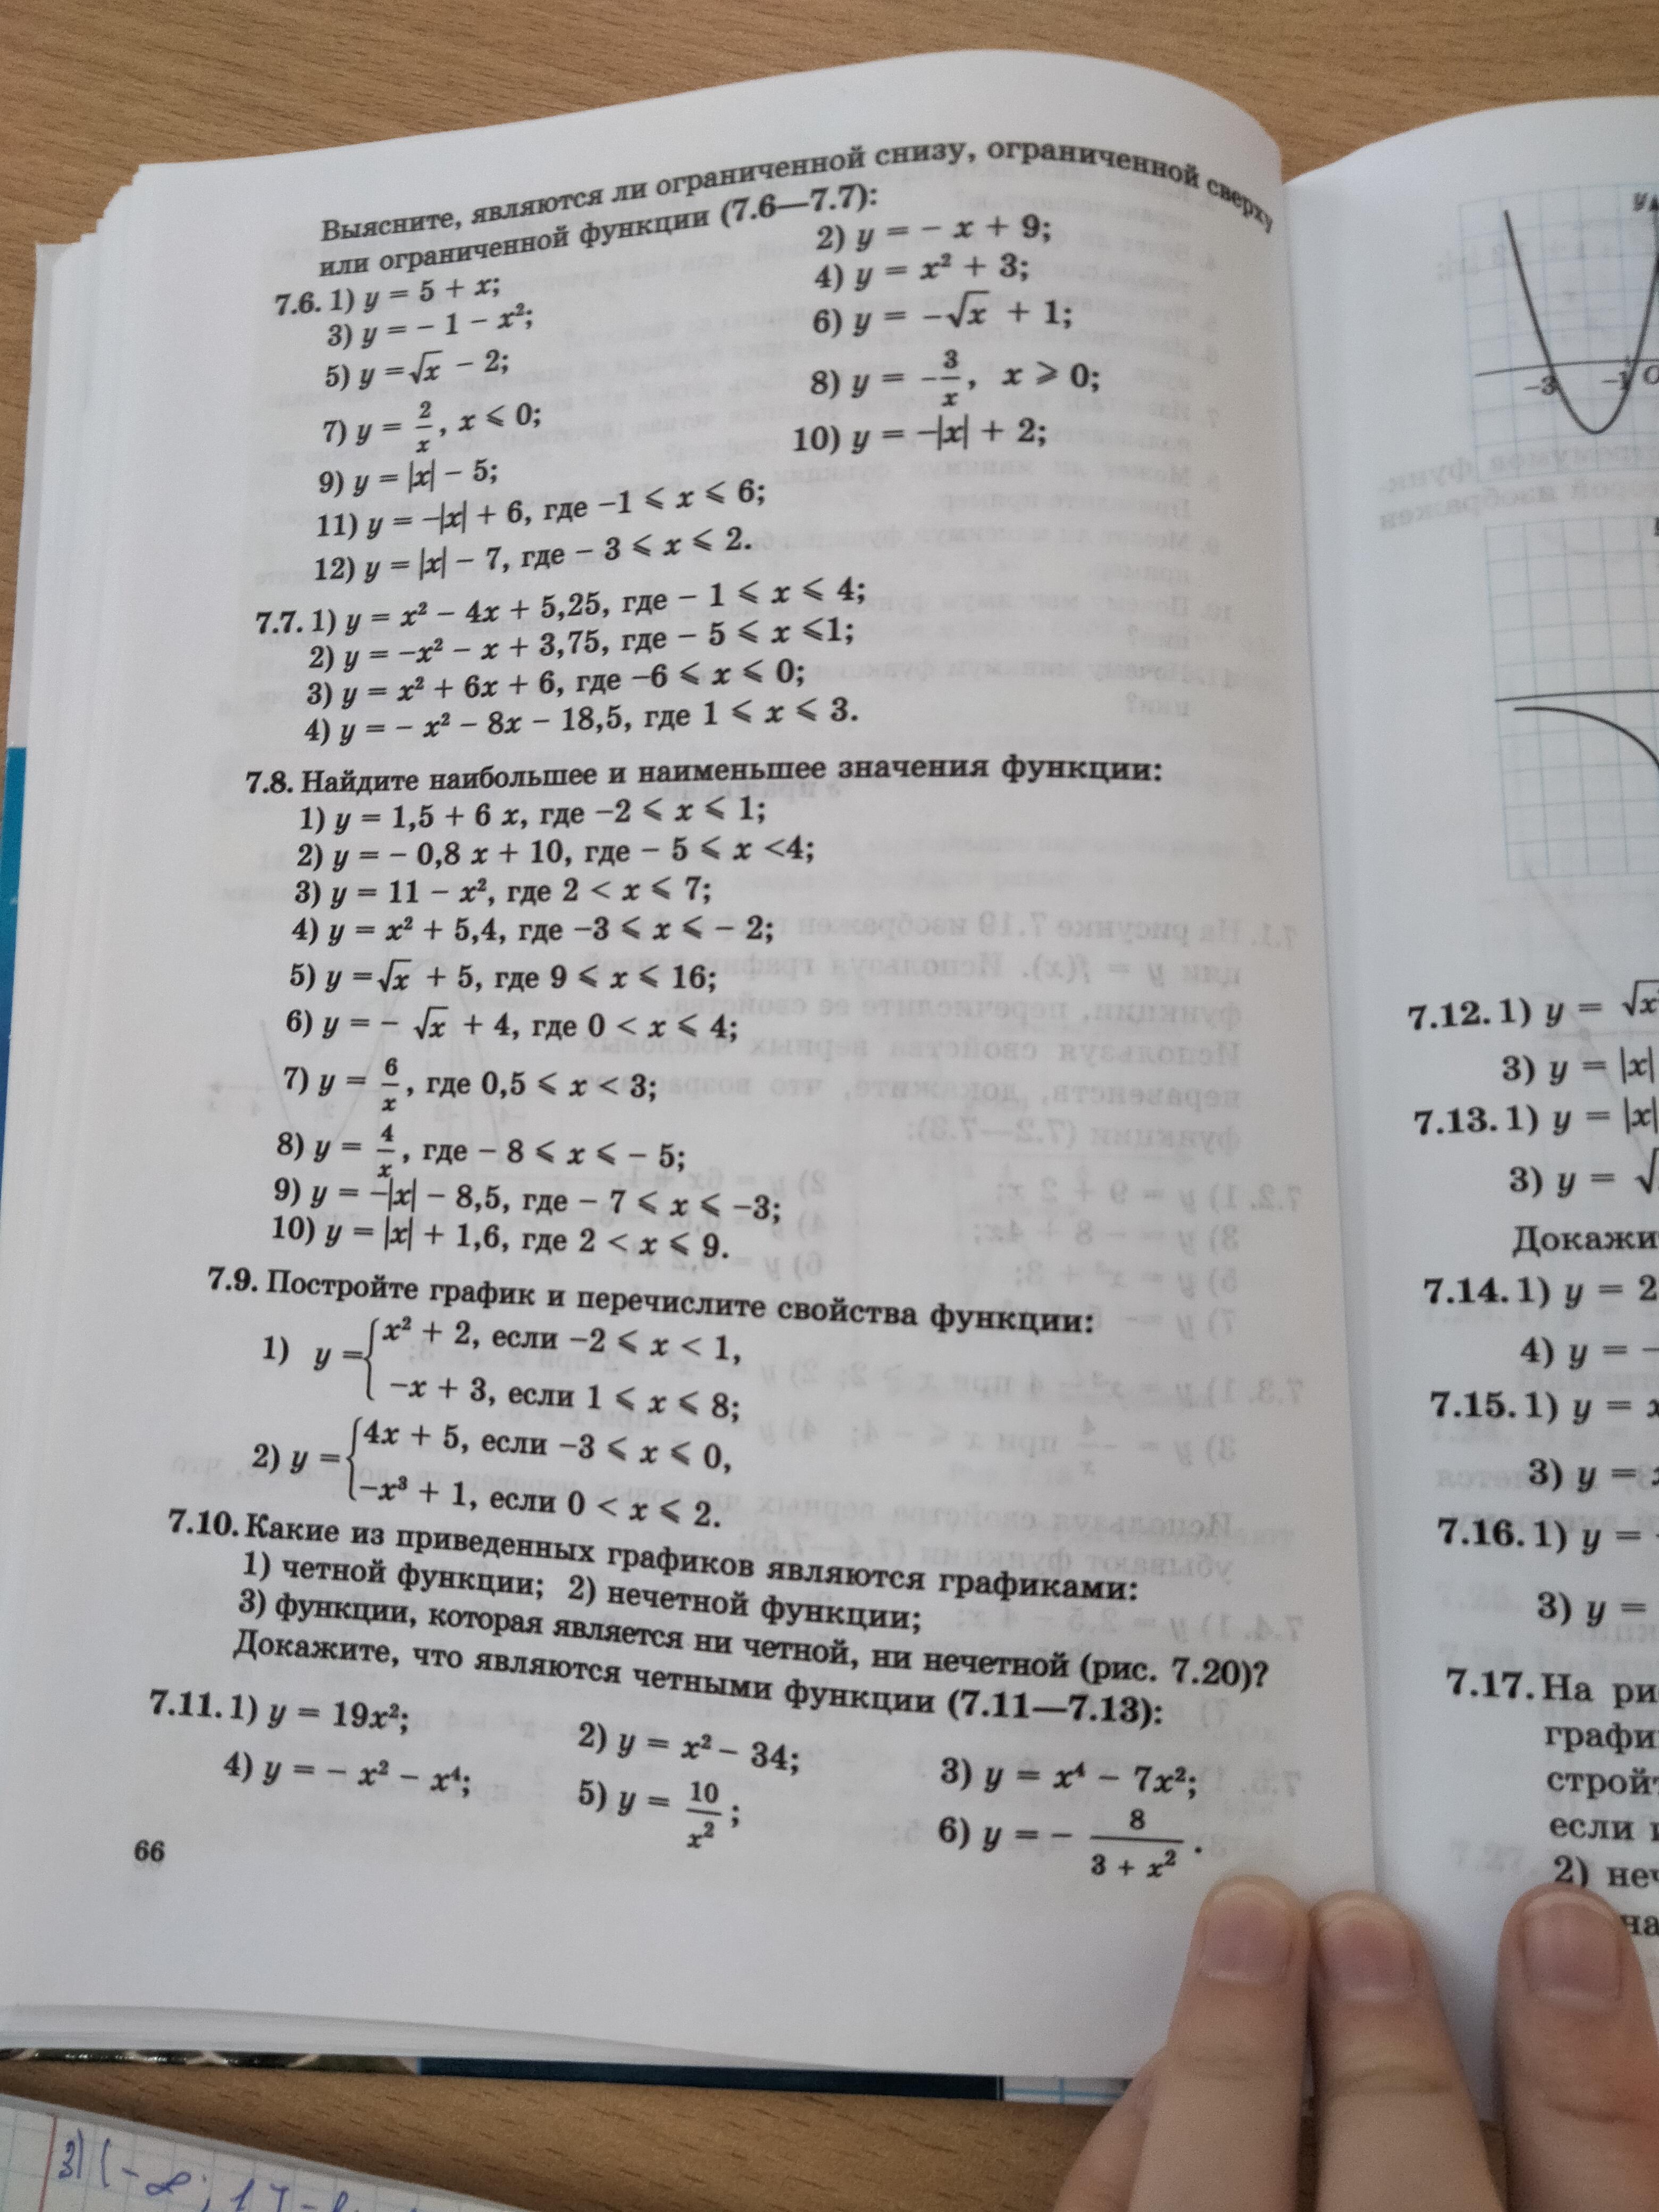 Выясните, являются ли ограниченной снизу, ограниченной сверху
или ограниченной функции (7.6—7.7):
7.6. 1) y = 5 + x; 2) y = − x + 9;
3) y = − 1 − x²; 4) y = x² + 3;
5) y = √x − 2; 6) y = −√x + 1;
7) y = 2/x, x ⩽ 0; 8) y = −3/x, x ⩾ 0;
9) y = |x| − 5; 10) y = −|x| + 2;
11) y = −|x| + 6, где −1 ⩽ x ⩽ 6;
12) y = |x| − 7, где − 3 ⩽ x ⩽ 2.
7.7. 1) y = x² − 4x + 5,25, где − 1 ⩽ x ⩽ 4;
2) y = −x² − x + 3,75, где − 5 ⩽ x ⩽1;
3) y = x² + 6x + 6, где −6 ⩽ x ⩽ 0;
4) y = − x² − 8x − 18,5, где 1 ⩽ x ⩽ 3.
7.8. Найдите наибольшее и наименьшее значения функции:
1) y = 1,5 + 6 x, где −2 ⩽ x ⩽ 1;
2) y = − 0,8 x + 10, где − 5 ⩽ x <4;
3) y = 11 − x², где 2 < x ⩽ 7;
4) y = x² + 5,4, где −3 ⩽ x ⩽ − 2;
5) y =√x + 5, где 9 ⩽ x ⩽ 16;
6) y = − √x + 4, где 0 < x ⩽ 4;
7) y = 6/x, где 0,5 ⩽ x < 3;
8) y = 4/x, где − 8 ⩽ x ⩽ − 5;
9) y = −|x| − 8,5, где − 7 ⩽ x ⩽ −3;
10) y = |x| + 1,6, где 2 < x ⩽ 9.
7.9. Постройте график и перечислите свойства функции:
1) y = { x² + 2, если −2 ⩽ x < 1,
−x + 3, если 1 ⩽ x ⩽ 8;
2) y = { 4x + 5, если −3 ⩽ x ⩽ 0,
−x³ + 1, если 0 < x ⩽ 2.
7.10. Какие из приведенных графиков являются графиками:
1) четной функции; 2) нечетной функции;
3) функции, которая является ни четной, ни нечетной (рис. 7.20)?
Докажите, что являются четными функции (7.11—7.13):
7.11. 1) y = 19x²; 2) y = x² − 34; 3) y = x⁴ − 7x²;
4) y = − x² − x⁴; 5) y = 10/x²; 6) y = − 8/(3 + x²).
66
y
−3 −1 O
7.12. 1) y = √x
3) y = |x|
7.13. 1) y = |x|
3) y = √
Докажи
7.14. 1) y = 2
4) y = −
7.15. 1) y = x
3) y = x
7.16. 1) y =
3) y =
7.17. На ри
графи
строй
если
2) неч
на
3) (− ∞; 1